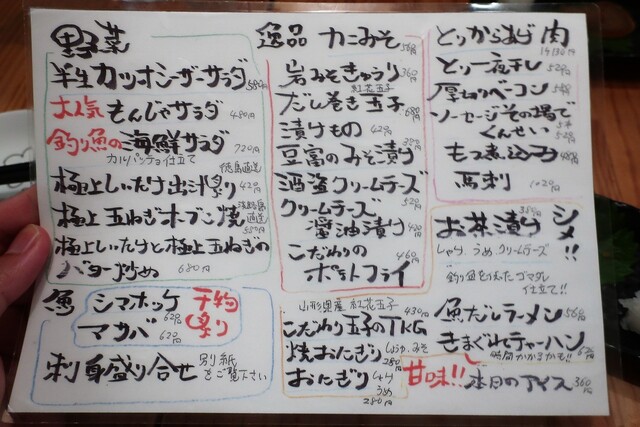 野菜
半生カツオシーザーサラダ 580円
大人気 もんじゃサラダ 480円
釣り魚の海鮮サラダ 720円
カルパッチョ仕立て
徳島直送
極上しいたけ出汁炙り 420円
淡路島直送
極上玉ねぎオーブン焼 580円
極上しいたけと極上玉ねぎの
バター炒め 680円
魚
シマホッケ 620円
マサバ 620円
予約
炙り
刺身盛り合せ 別紙をご覧下さい
逸品
カニみそ 560円
岩みそきゅうり 360円
紅花玉子
だし巻き玉子 680円
漬けもの 420円
豆富のみそ漬け 390円
酒盗クリームチーズ 520円
クリームチーズ
醤油漬け 420円
こだわりの 460円
ポテトフライ
山形県産 紅花玉子
こだわり玉子のTKG 430円
焼おにぎり しょうゆ、みそ 280円
おにぎり しゃけ うめ 280円
肉
とりからあげ
とり一夜干し 520円
厚切りベーコン
ソーセージその場で
くんせい
もつ煮込み
馬刺 1020円
シメ!!
お茶漬け 380円
しゃけ、うめ、クリームチーズ
仕立て!!
魚だしラーメン 560円
きまぐれチャーハン
時間かかるかも!!
甘味!!
本日のアイス 360円